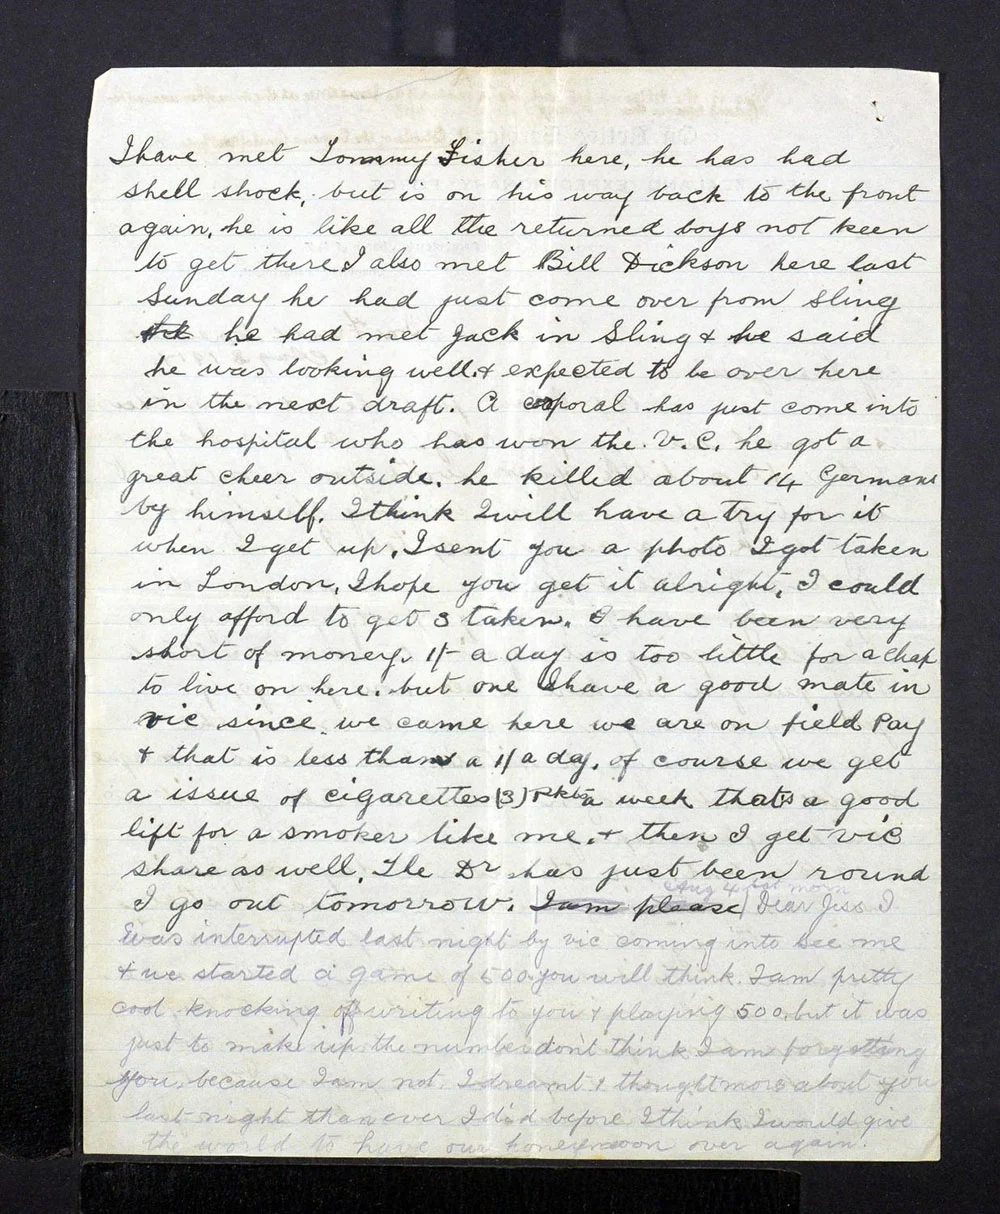 I have met Tommy Fisher here, he has had
shell shock, but is on his way back to the front
again, he is like all the returned boys not keen
to get there I also met Bill Dickson here last
Sunday he had just come over from Sling
he had met Jack in Sling & he said
he was looking well & expected to be over here
in the next draft. A corporal has just come into
the hospital who has won the V.C. he got a
great cheer outside. he killed about 14 Germans
by himself. I think I will have a try for it
when I get up, I sent you a photo I got taken
in London, I hope you get it alright, I could
only afford to get 3 taken. I have been very
short of money, 1/- a day is too little for a chap
to live on here. but one I have a good mate in
vic since we came here we are on field Pay
& that is less than a 1/ a day. of course we get
a issue of cigarettes (3) Pkts a week thats a good
lift for a smoker like me, & then I get vic
share as well, The Dr has just been round
Aug 4 morn
I go out tomorrow. I am please Dear Jiss I
was interrupted last night by vic coming into see me
& we started a game of 500. you will think I am pretty
cool knocking off writing to you & playing 500, but it was
just to make up the number dont think I am forgetting
you, because I am not. I dreamt & thought more about you
last night than ever I did before I think I would give
the world to have our honeymoon over again.